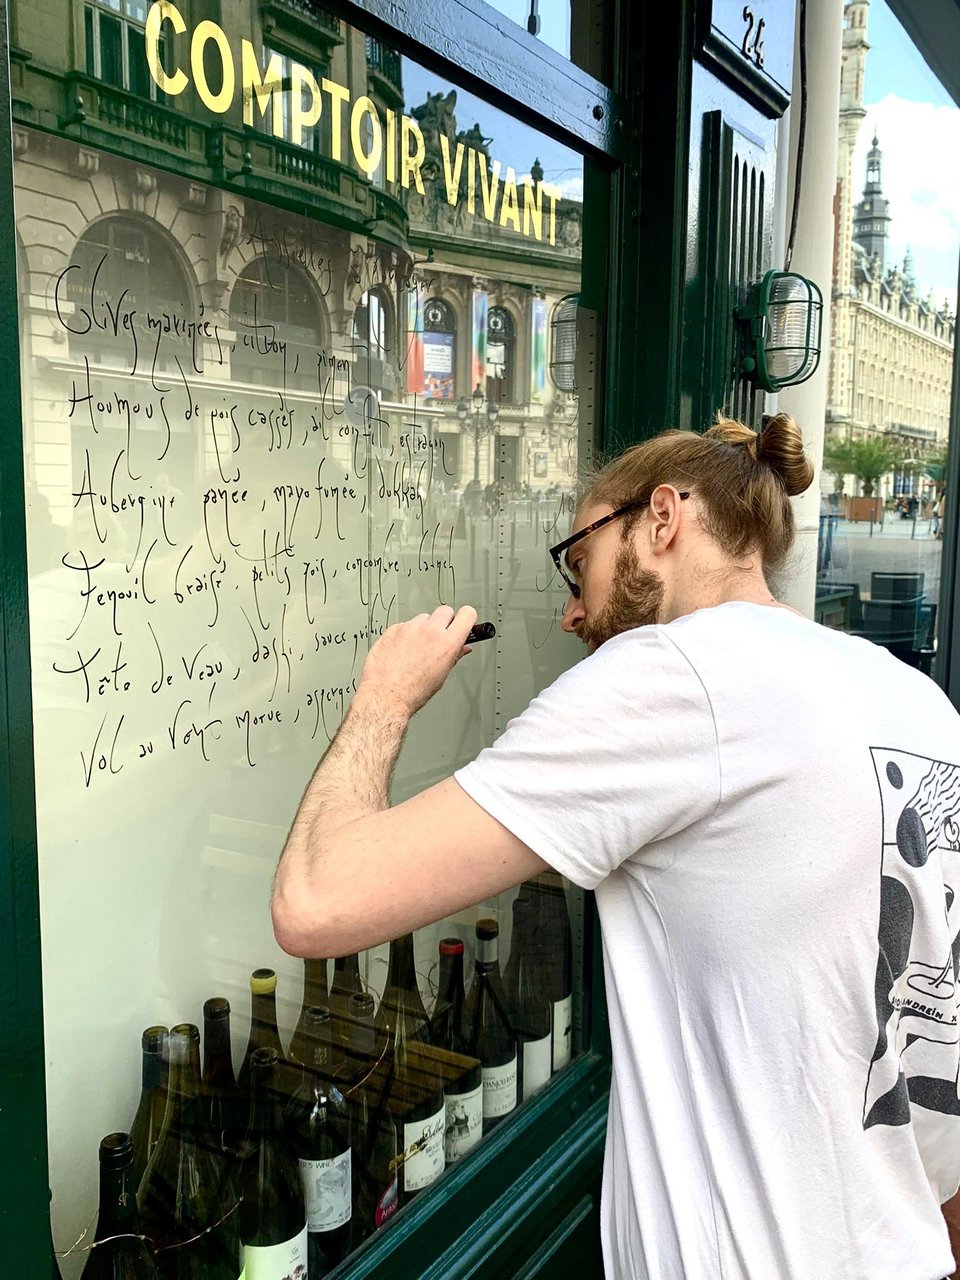 24
COMPTOIR VIVANT
Assiettes à Partager
Olives marinées, citron, piment
Houmous de pois cassés, ail confit, estragon
Aubergine panée, mayo fumée, dukkah
Fenouil braisé, petits pois, concombre,
Tête de veau, dashi, sauce
Vol au Vent morue, asperges